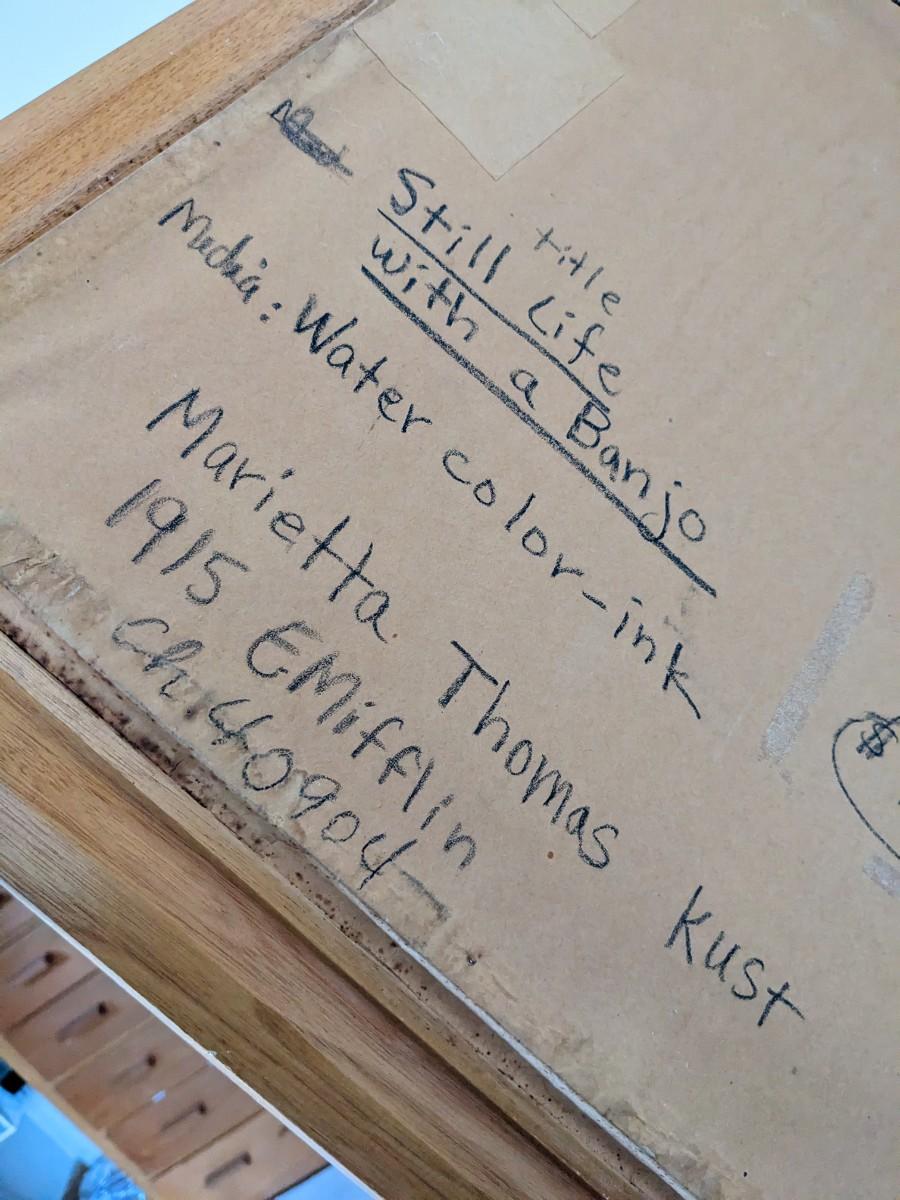 title
Still Life
with a Banjo
Media: Water color-ink
Marietta Thomas Kust
1915 E Mifflin
Ch. 40904
$